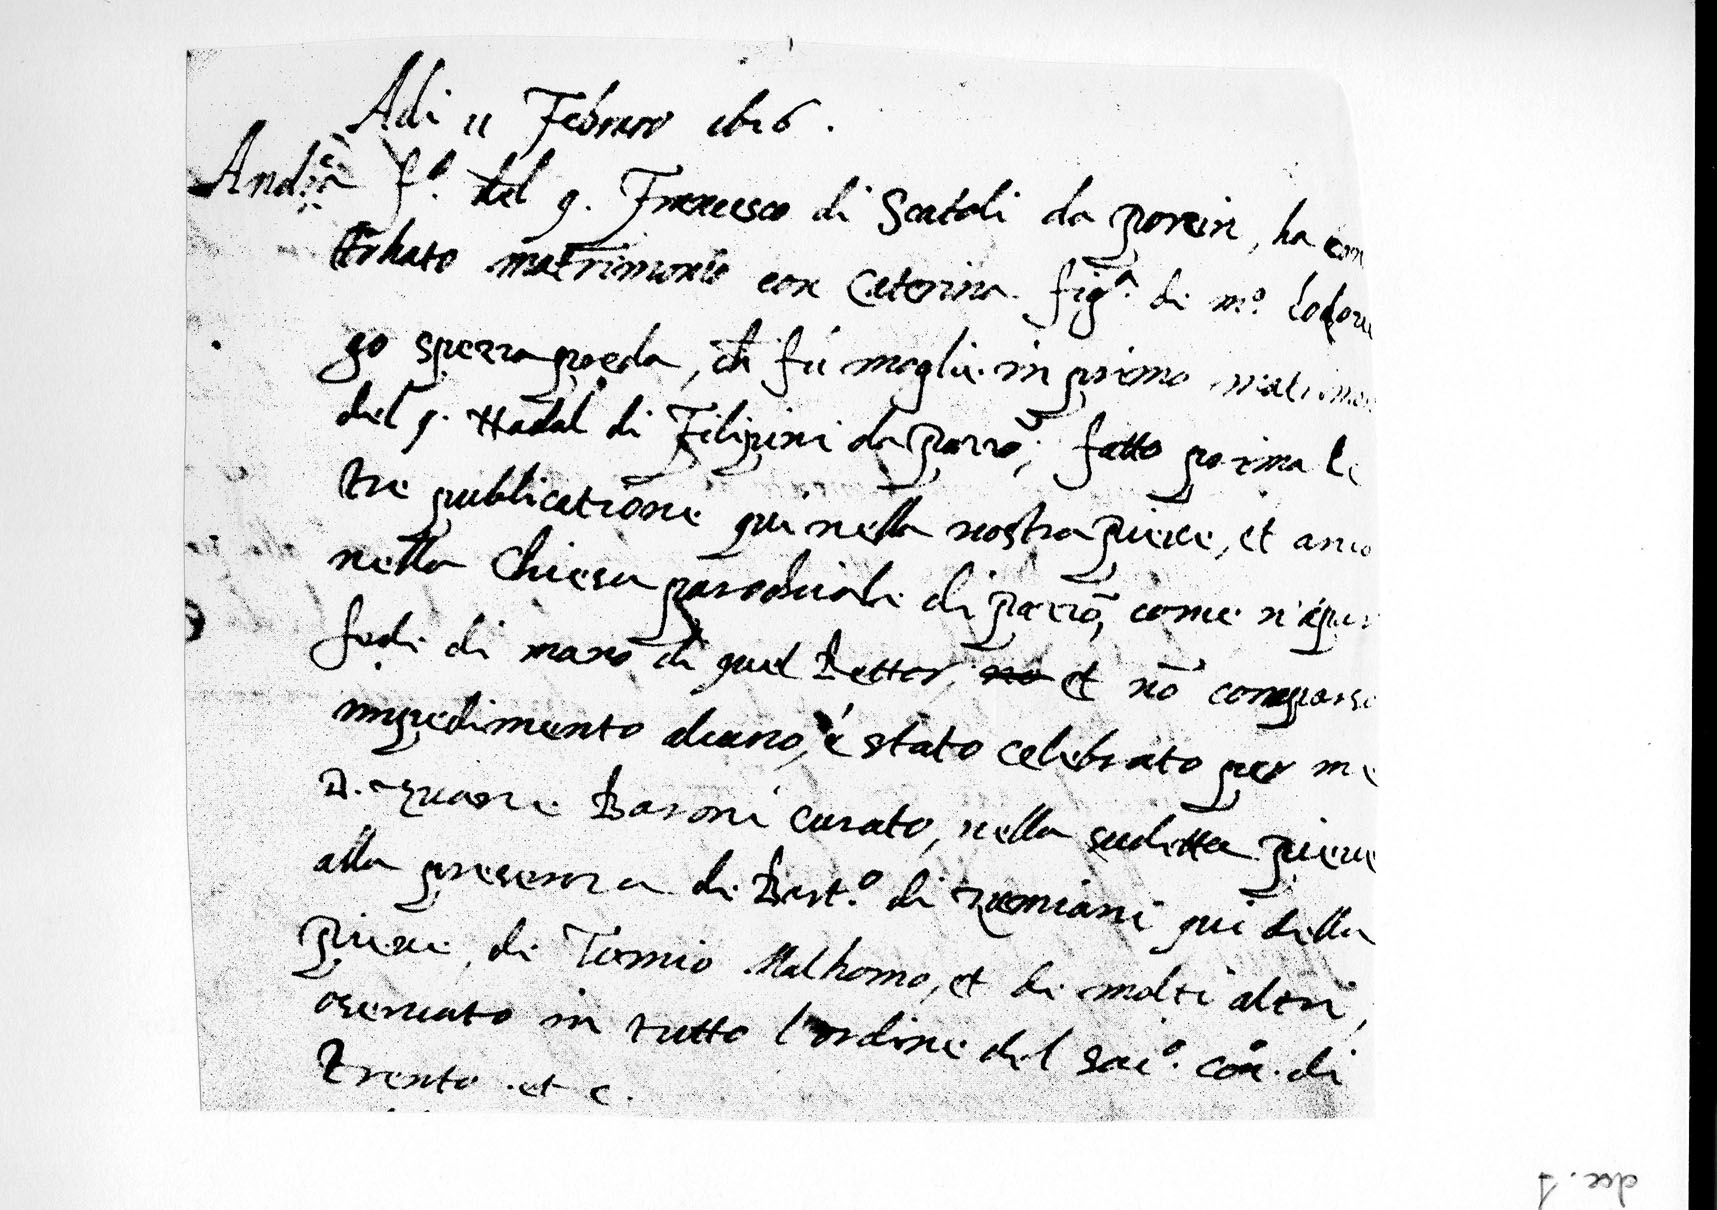 Adi 11 Febraro 1616.
Andrea f.º del q. Francesco di Scatoli da Porcin, ha con
trhato matrimonio con Caterina fig.ª di m.º Lodovi
go spezzapreda, ch fú moglie in primo matrimon
del q. Nadal di Filipini da Parrõ, fatto prima le
tre publicatione qui nella nostra pieve, et anco
nella Chiesa parochiale di Parrõ, come n'apar
fede di mano di quel Rettor, no et nõ comparso
impedimento alcuno, é stato celebrato per me
Baroni curato, nella sudetta pieve
alla presenza di Bart.º di qui della
pieve, di Tomio Malhomo, et di molti altri,
oservato in tutto l'ordine del sac.º con. di
Trento et c.
doc. 1